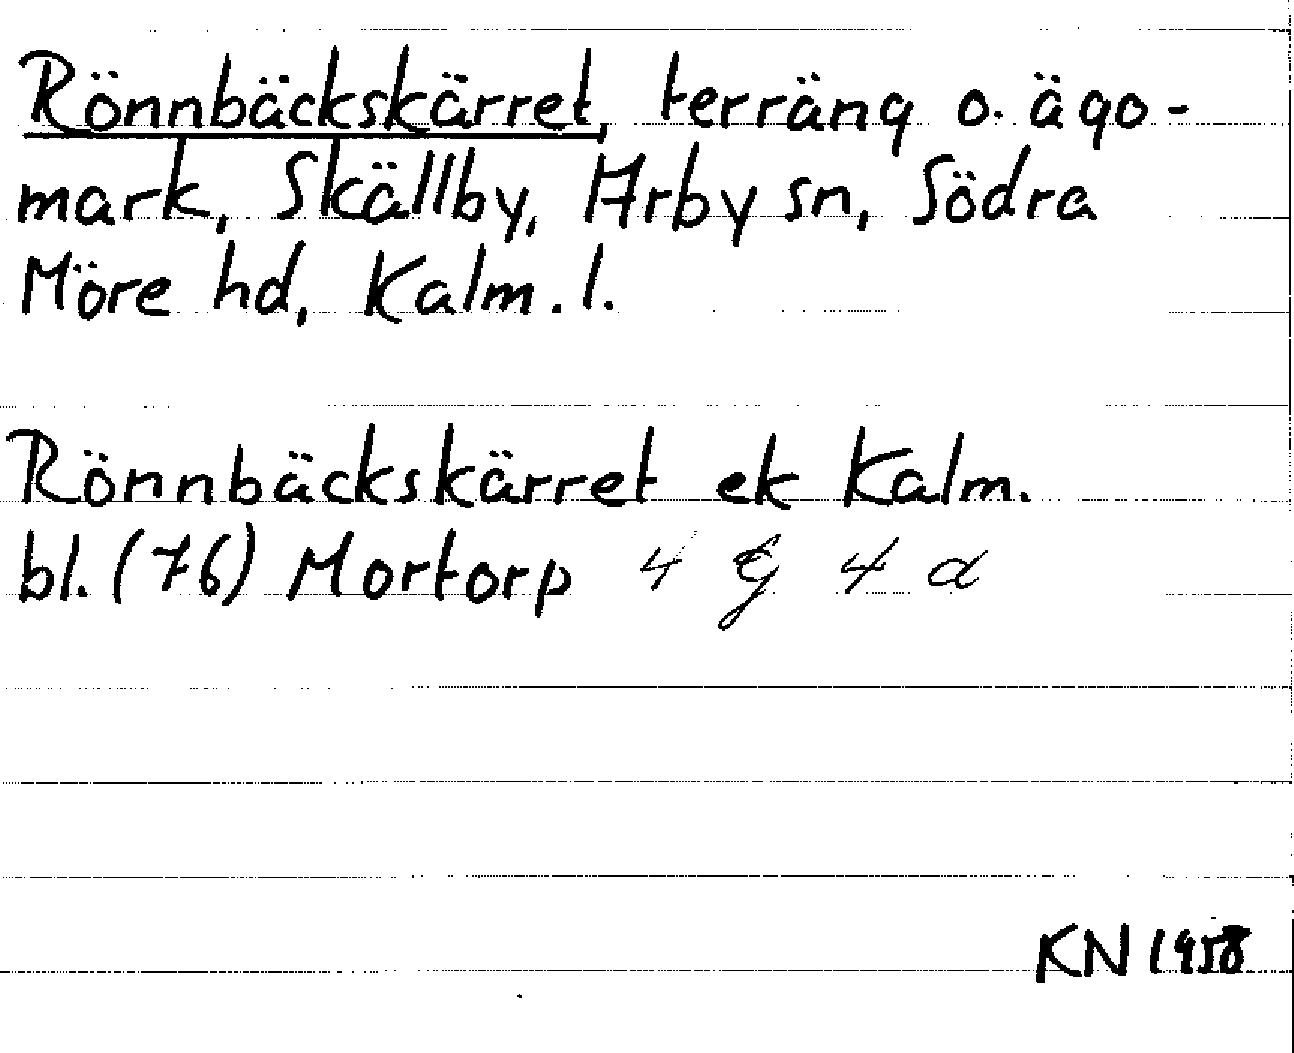 Rönnbäckskärret, terräng o. ägo-
mark, Skällby, Arby sn, Södra
Möre hd, Kalm. l.
Rönnbäckskärret ek Kalm.
bl. (76) Mortorp 4 G 4 d
KN 1958